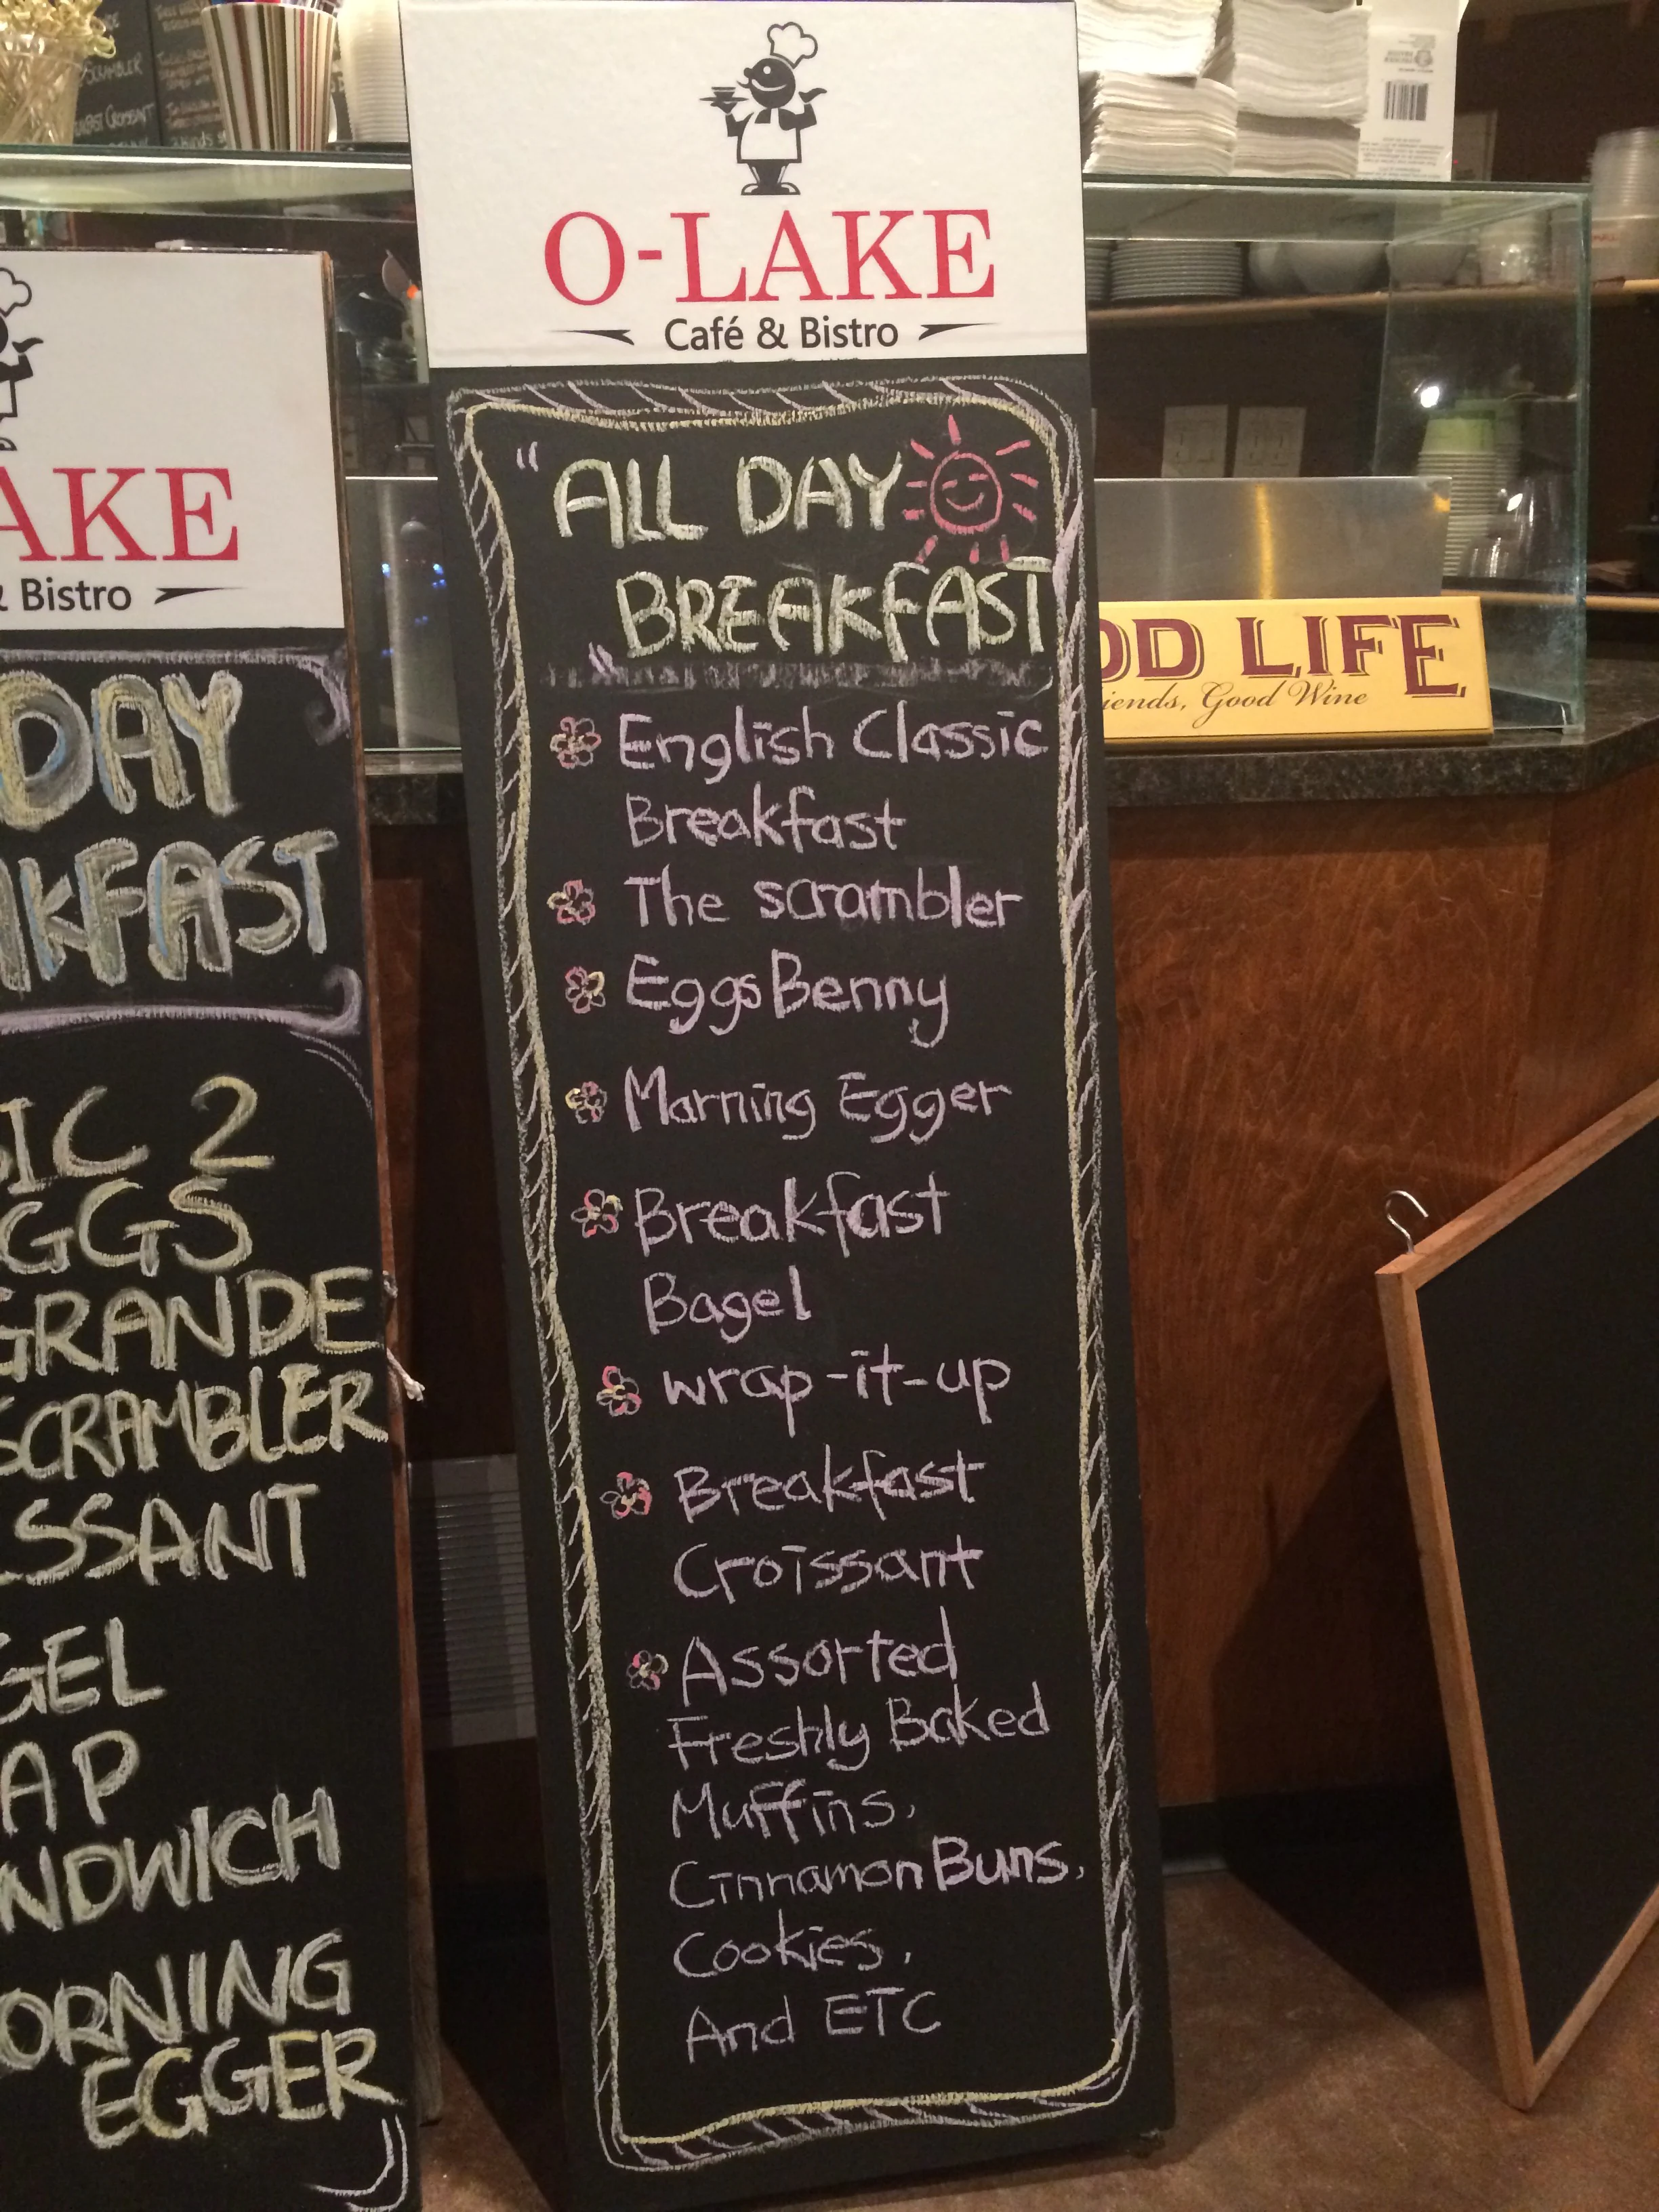 O-LAKE
Café & Bistro
"ALL DAY
BREAKFAST
"
English Classic
Breakfast
The scrambler
Eggs Benny
Marning Egger
Breakfast
Bagel
wrap-it-up
Breakfast
Croissant
Assorted
Freshly Baked
Muffins,
Cinnamon Buns,
Cookies,
And ETC
AKE
& Bistro
DAY
AKFAST
SIC 2
GGS
GRANDE
SCRAMBLER
ISSANT
GEL
AP
NDWICH
ORNING
EGGER
OD LIFE
iends, Good Wine
SCRAMBLER